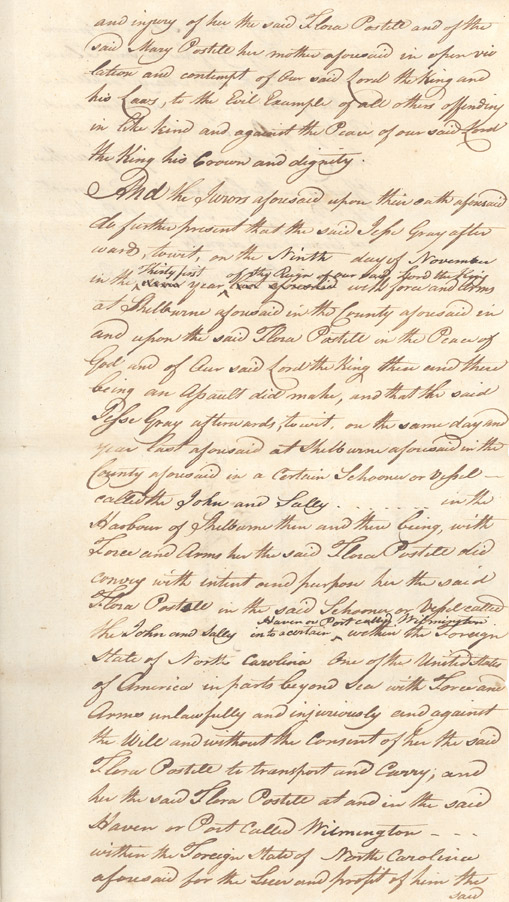 and injury of her the said Flora Postell and of the
said Mary Postell her mother aforesaid in open vio
lation and contempt of Our said Lord the King and
his Laws, to the Evil Example of all others offending
in like kind and against the Peace of our said Lord
the King his Crown and dignity.
And the Jurors aforesaid upon their oath aforesaid
do further present that the said Jesse Gray after
ward, towit, on the Ninth day of November
Thirty first of the Reign of our said Lord the King
in the year with force and Arms
at Shelburne aforesaid in the County aforesaid in
and upon the said Flora Postell in the Peace of
God and of Our said Lord the King then and there
being an Assault did make, and that the said
Jesse Gray afterwards, towit, on the same day and
year last aforesaid at Shelburne aforesaid in the
County aforesaid in a Certain Schooner or Vessel —
called the John and Sally . . . . . . . in the
Harbour of Shelburne then and there being, with
Force and Arms her the said Flora Postell did
convey with intent and purpose her the said
Flora Postell in the said Schooner or Vessel called
Haven or Port called Wilmington
the John and Sally into a certain within the Foreign
State of North Carolina One of the United States
of America in parts beyond Sea with Force and
Arms unlawfully and injuriously and against
the Will and without the Consent of her the said
Flora Postell to transport and Carry; and
her the said Flora Postell at and in the said
Haven or Port Called Wilmington - - -
within the Foreign State of North Carolina
aforesaid for the Lucre and profit of him the
said